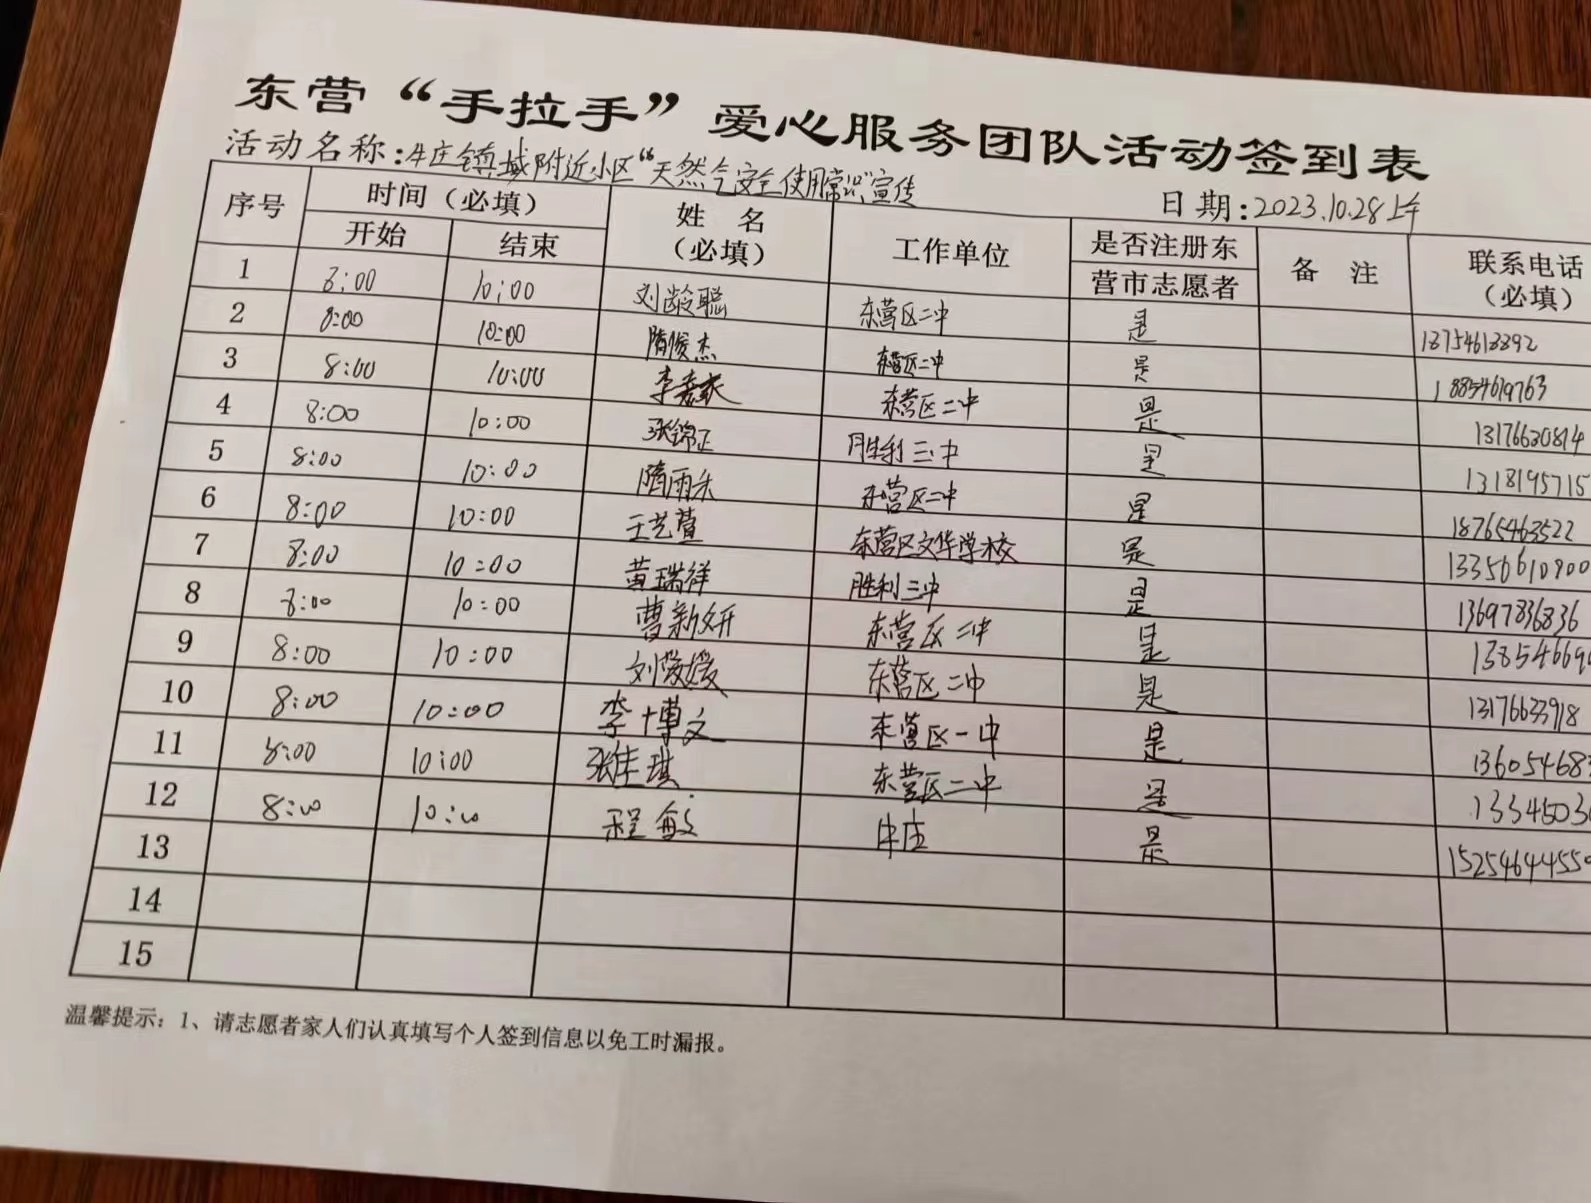 东营“手拉手”爱心服务团队活动签到表
活动名称:牛庄镇域附近小区“天然气安全使用常识”宣传
日期:2023.10.28上午
序号 时间(必填) 姓名(必填) 工作单位 是否注册东营市志愿者 备注 联系电话(必填)
开始 结束
1 8:00 10:00 刘龄聪 东营区二中 是
2 8:00 10:00 隋俊杰 东营区二中 是 18854619763
3 8:00 10:00 李 东营区二中 是 13176630814
4 8:00 10:00 张锦正 胜利三中 是 1318195715
5 8:00 10:00 隋雨禾 东营区二中 是 18765463522
6 8:00 10:00 王艺萱 东营区文华学校 是 13356610900
7 8:00 10:00 黄瑞祥 胜利三中 是 13697836836
8 8:00 10:00 曹新妍 东营区二中 是 13854669
9 8:00 10:00 刘媛媛 东营区二中 是 13176633918
10 8:00 10:00 李博文 东营区一中 是 136054683
11 8:00 10:00 张佳琪 东营区二中 是 13345030
12 8:00 10:00 程敏 牛庄 是 15254644550
13
14
15
温馨提示:1、请志愿者家人们认真填写个人签到信息以免工时漏报。